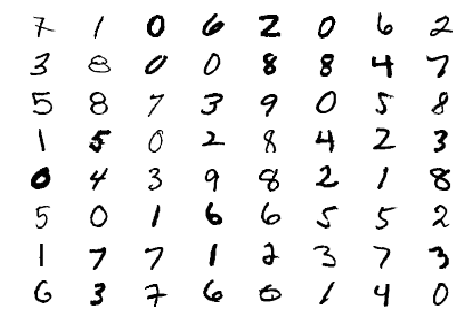 7 1 0 6 2 0 6 2
3 8 0 0 8 8 4 7
5 8 7 3 9 0 5 8
1 5 0 2 8 4 2 3
0 4 3 9 8 2 1 8
5 0 1 6 6 5 5 2
1 7 7 1 2 3 7 3
6 3 7 6 6 1 4 0